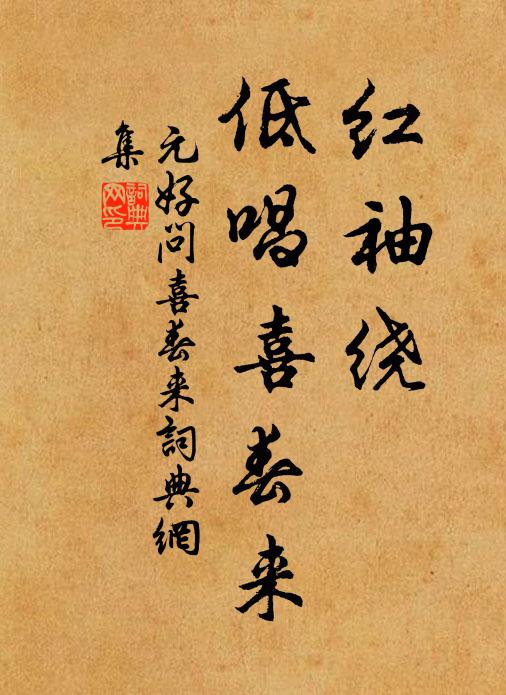 红袖绕
低唱喜春来
元好问喜春来詞典網
集
詞典
网印